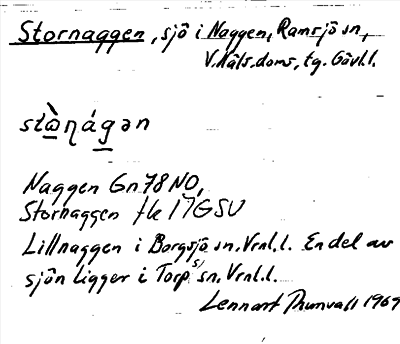 Stornaggen, sjö i Naggen, Ramsjö sn,
V. Häls. doms. tg. Gävl.l.
stànágən
Naggen Gn 78 NO,
Stornaggen fk 17G SV
Lillnaggen i Borgsjö sn. Vrnl.l. En del av
sjön ligger i Torps sn. Vrnl.l.
Lennart Thunvall 1969